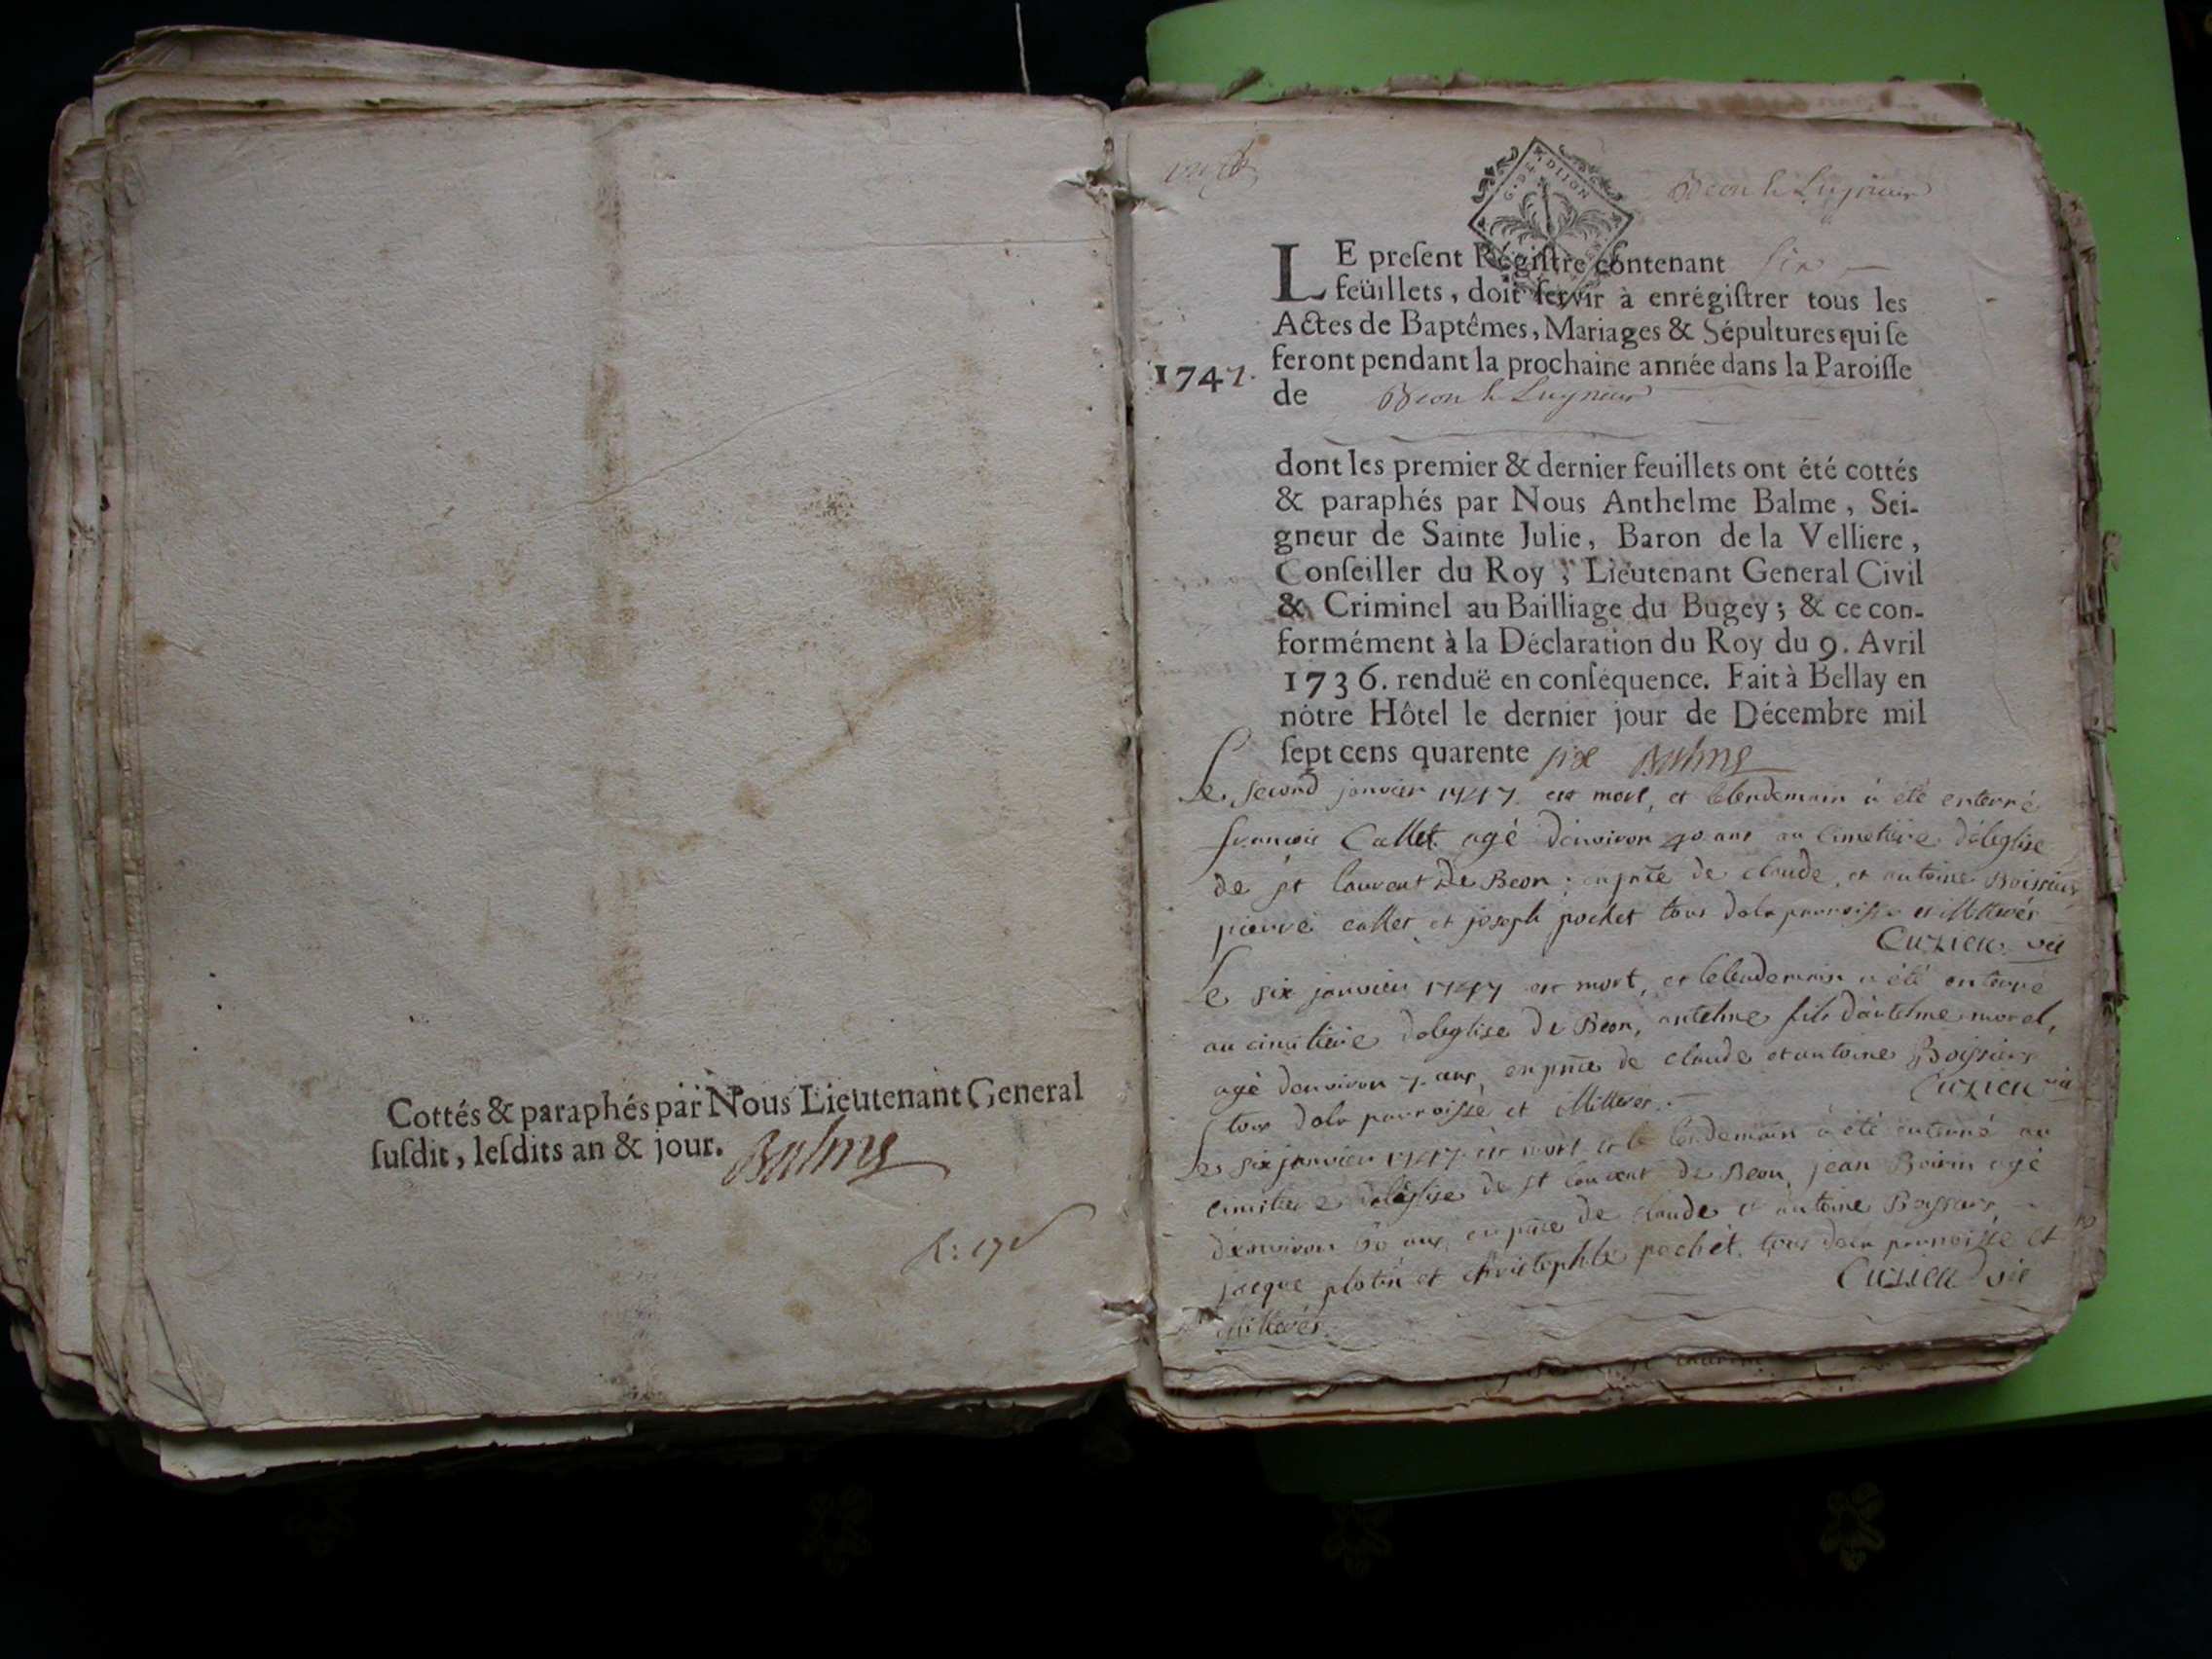 Cottés & paraphés par Nous Lieutenant General
ſuſdit, leſdits an & jour. Balme
G. DE DIJON
Beon le Luyrieux
LE preſent Régiſtre contenant six
feüillets, doit ſervir à enrégiſtrer tous les
Actes de Baptêmes, Mariages & Sépultures qui ſe
feront pendant la prochaine année dans la Paroiſſe
1747.
de Beon le Luyrieux
dont les premier & dernier feuillets ont été cottés
& paraphés par Nous Anthelme Balme, Sei-
gneur de Sainte Julie, Baron de la Velliere,
Conſeiller du Roy, Lieutenant General Civil
& Criminel au Bailliage du Bugey; & ce con-
formément à la Déclaration du Roy du 9. Avril
1736. renduë en conſéquence. Fait à Bellay en
nótre Hôtel le dernier jour de Décembre mil
ſept cens quarente six Balme
Le second janvier 1747 est mort, et lelendemain a été enterré
francois Callet agé denviron 40 ans au cimetiere deleglise
de st laurent de Beon; en pñce de claude, et antoine Boissieus
pierre callet et joseph pochet tous dela parroisse et illitterés
Cuzieu vic
Le six janvier 1747 est mort, et lelendemain a été enterré
au cimetiere deleglise de Beon, antelme fils dantelme morel,
agé denviron 7 ans, en pñce de claude et antoine Boissieus
tous dela parroisse et illitteres.
Cuzieu vic
Le six janvier 1747 est mort et le lendemain a été enterré au
cimetiere deleglise de st laurent de Beon, jean Boirin agé
denviron 60 ans, en pñce de claude et antoine Boissieus
jacque plotin et christophle pochet, tous dela parroisse et
illitterés.
Cuzieu vic